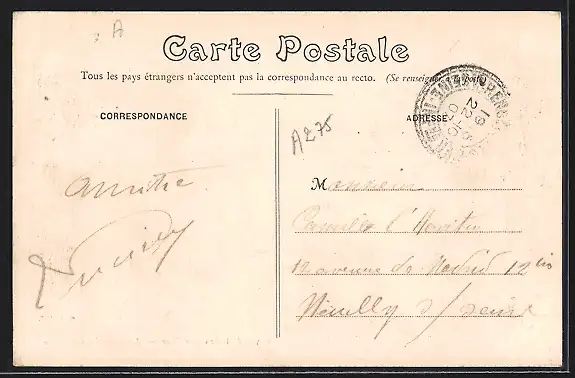 A
Carte Postale
Tous les pays étrangers n'acceptent pas la correspondance au recto. (Se renseigner à la poste)
CORRESPONDANCE
ADRESSE
A275
Amitié
Monsieur
Camille l'
12 avenue de Madrid 12 bis
Neuilly s/ Seine